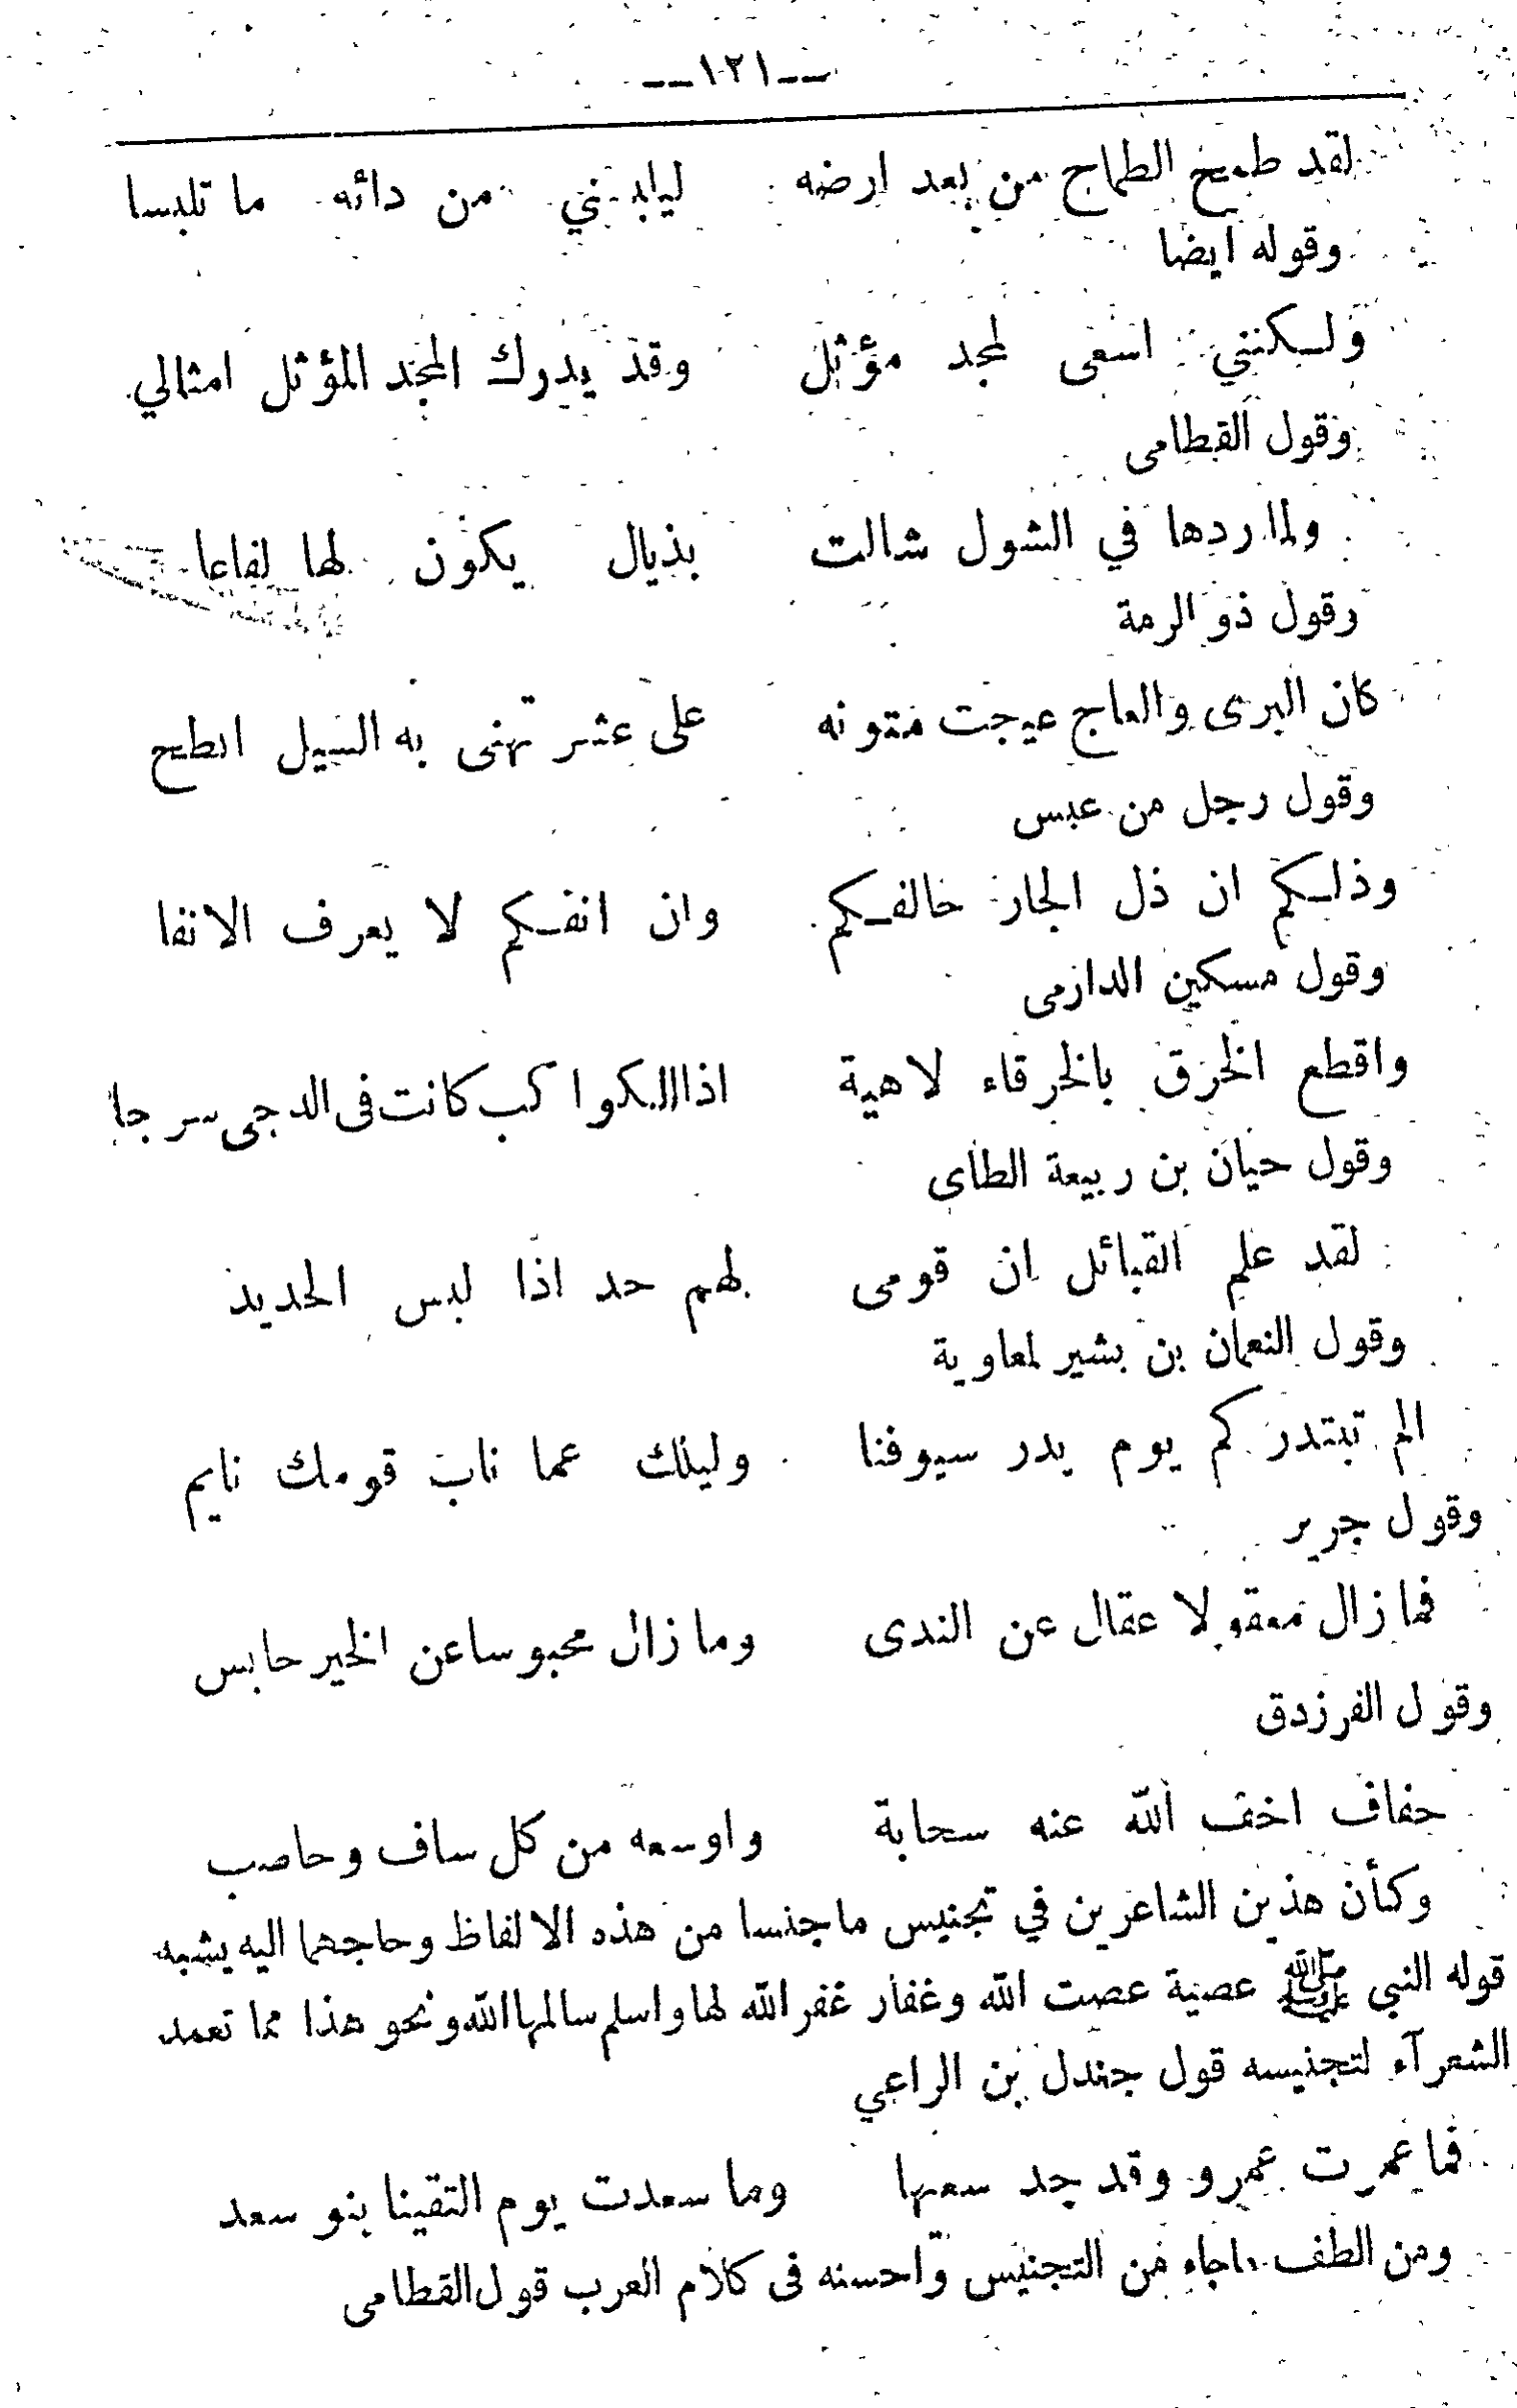 --١٢١--
لقد طمح الطماح من بعد ارضه ليلبسني من دائه ما تلبسا
وقوله ايضا
ولكنني اسعى لمجد مؤثل وقد يدرك المجد المؤثل امثالي
وقول القطامى
ولما ردها في الشول شالت بذيال يكون لها لفاعا
وقول ذو الرمة
كان البرى والعاج عيجت متونه على عشر نهى به السيل ابطح
وقول رجل من عبس
وذلكم ان ذل الجار حالفكم وان انفكم لا يعرف الانفا
وقول مسكين الدارمى
واقطع الخرق بالخرقاء لاهية اذا الكواكب كانت فى الدجى سرجا
وقول حيان بن ربيعة الطاى
لقد علم القبائل ان قومى لهم حد اذا لبس الحديد
وقول النعمان بن بشير لمعاوية
الم تبتدركم يوم بدر سيوفنا وليلك عما ناب قومك نايم
وقول جرير
فما زال معقولا عقال عن الندى وما زال محبوسا عن الخير حابس
وقول الفرزدق
خفاف اخف الله عنه سحابة واوسعه من كل ساف وحاصب
وكأن هذين الشاعرين في تجنيس ماجنسا من هذه الالفاظ وحاجهما اليه يشبه
قوله النبي ﷺ عصية عصت الله وغفار غفر الله لها واسلم سالمها الله ونحو هذا مما تعمد
الشعرآء لتجنيسه قول جندل بن الراعي
فما عمرت عمرو وقد جد سعيها وما سعدت يوم التقينا بنو سعد
ومن الطف ماجاء من التجنيس واحسنه فى كلام العرب قول القطامى